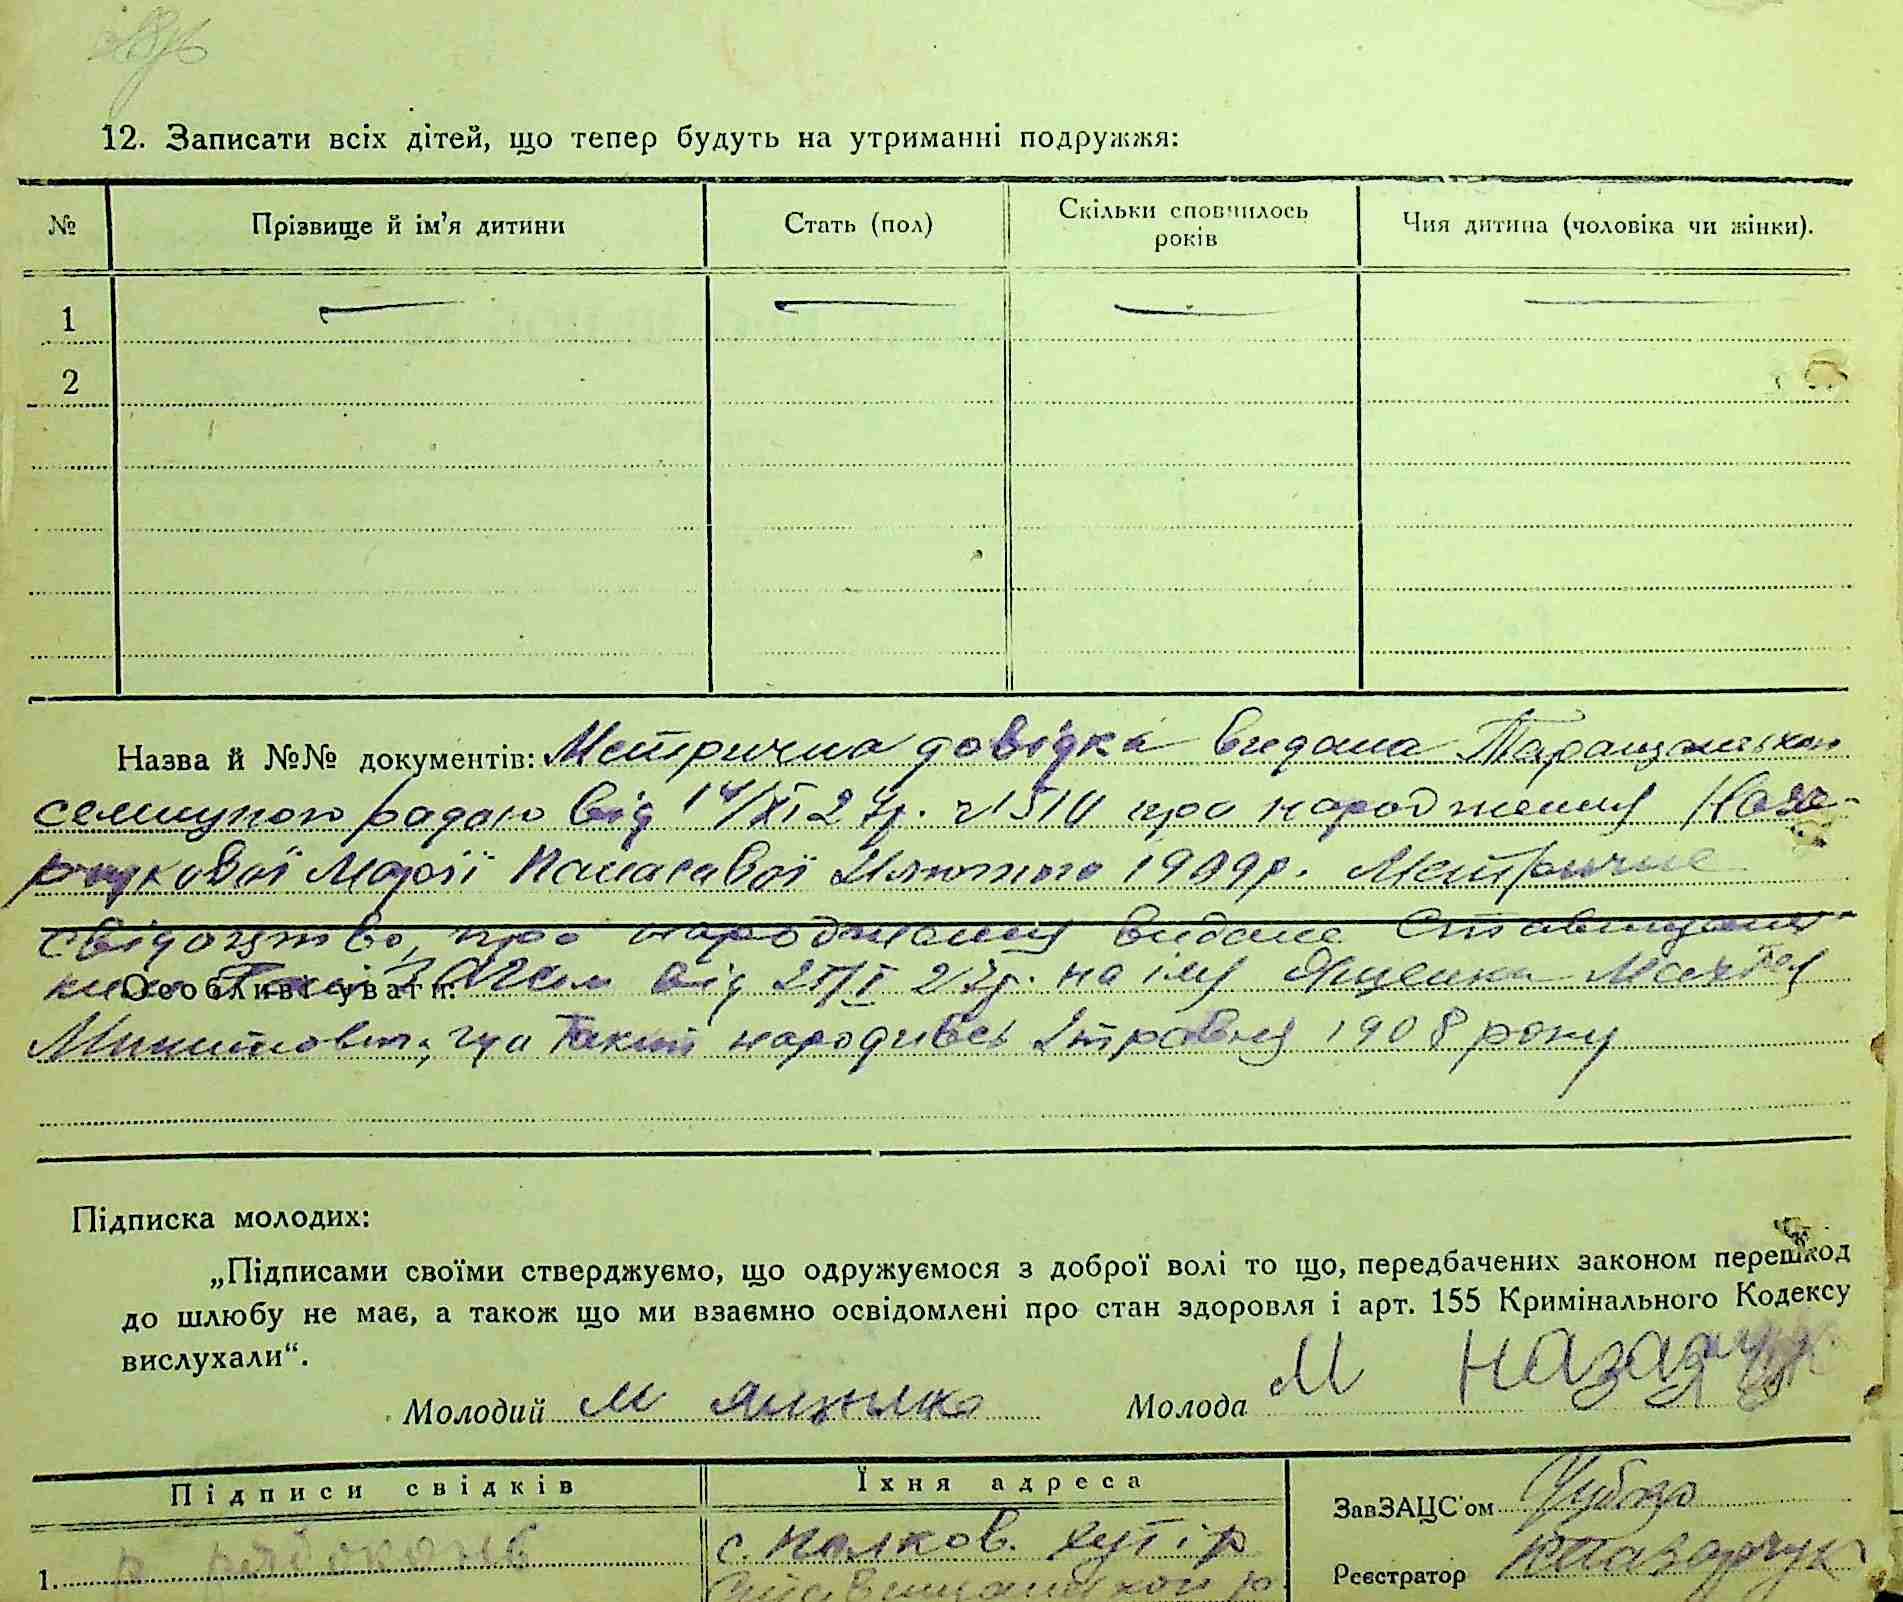 12. Записати всіх дітей, що тепер будуть на утриманні подружжя:
№ Прізвище й ім’я дитини Стать (пол) Скільки сповнилось років Чия дитина (чоловіка чи жінки).
1
2
Назва й №№ документів: Метрична довідка видана Таращанською
селищною радою від 14/XI 27р. про народження Наза-
рчукової Марії Панасової лютого 1909р. Метричне
свідоцтво, про народження видане Ставищанс
ким ЗАГСом від 27р. на імя Яценка Матвея
Особливі уваги:
Микитовича, що такий народивсь 2 травня 1908 року
Підписка молодих:
„Підписами своїми стверджуємо, що одружуємося з доброї волі то що, передбачених законом перешкод
до шлюбу не має, а також що ми взаємно освідомлені про стан здоровля і арт. 155 Кримінального Кодексу
вислухали“.
Молодий М Яценко Молода М Назарчук
Підписи свідків Їхня адреса ЗавЗАЦС’ом
1. Р рябоконь с. Полков. хутір Реєстратор Назарчук